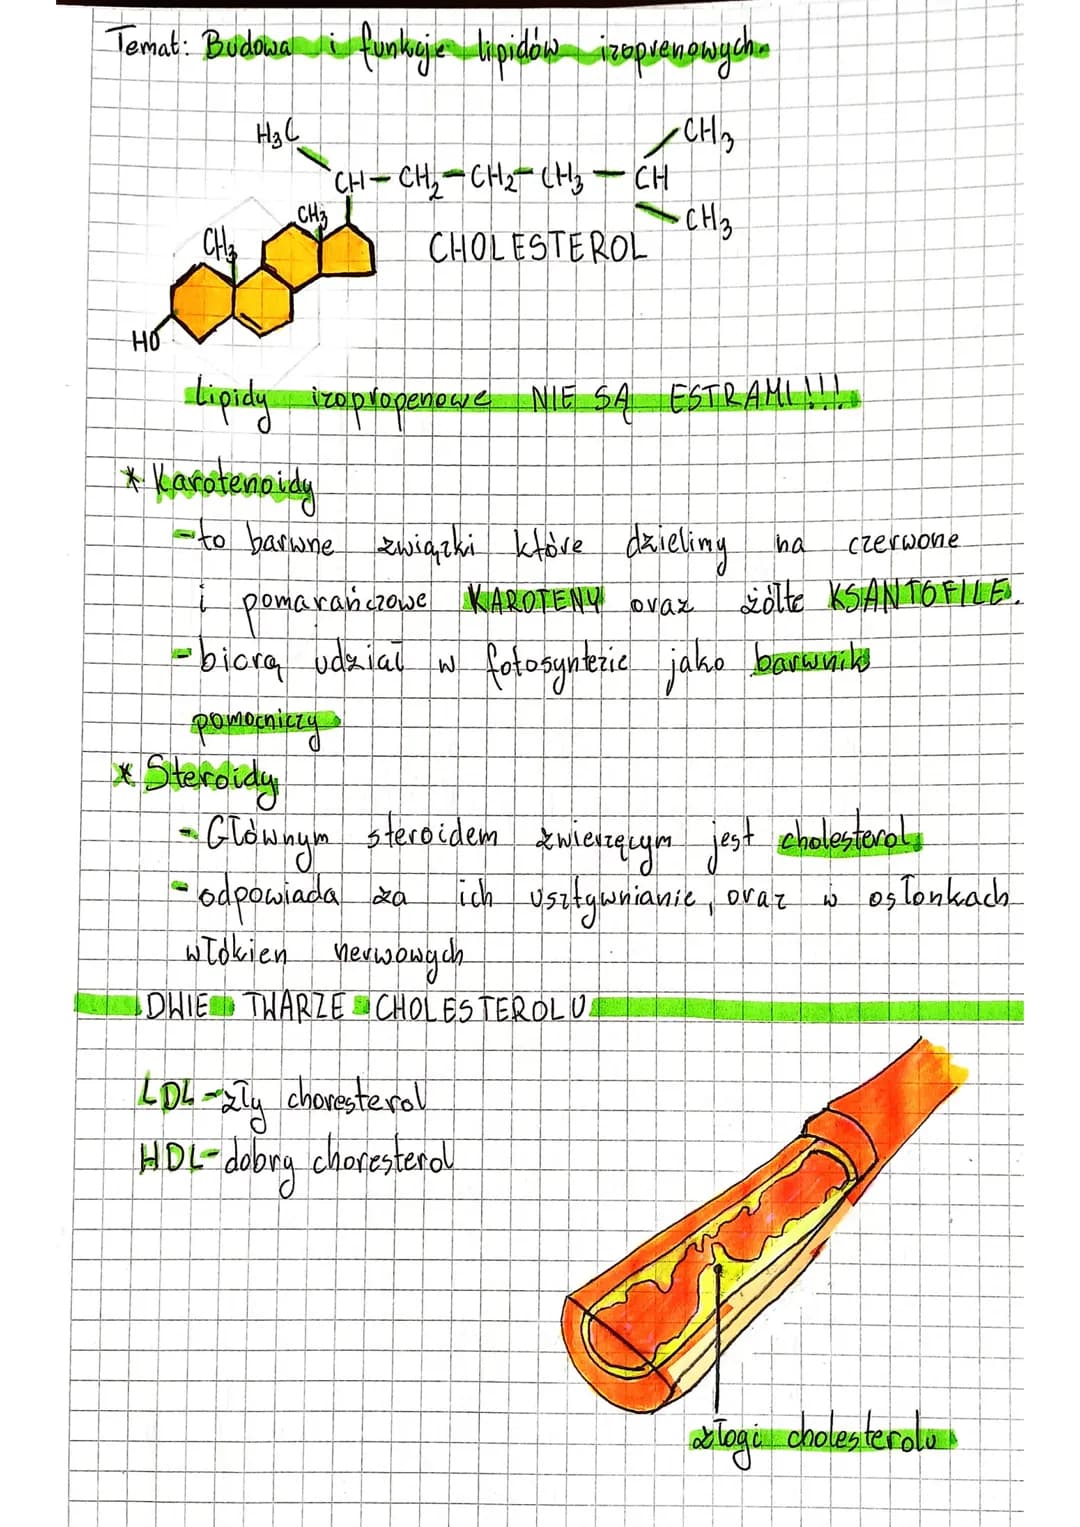 Temat: Budowa i funkcje lipidów izoprenowych.
H₃C
CH₃
CH-CH₂-CH₂-CH₃-CH
CH₃
CH₃
CH₃
CHOLESTEROL
HO
Lipidy izopropenowe NIE SĄ ESTRAMI!!!
* Karotenoidy
-to barwne związki które dzielimy na czerwone
i pomarańczowe KAROTENY oraz żółte KSANTOFILE.
-biorą udział w fotosyntezie jako barwnik
pomocniczy
* Steroidy
- Głównym steroidem zwierzęcym jest cholesterol
- odpowiada za ich usztywnianie, oraz w osłonkach
włókien nerwowych
DWIE TWARZE CHOLESTEROLU
LDL-zły choresterol
HDL-dobry choresterol
złogi cholesterolu